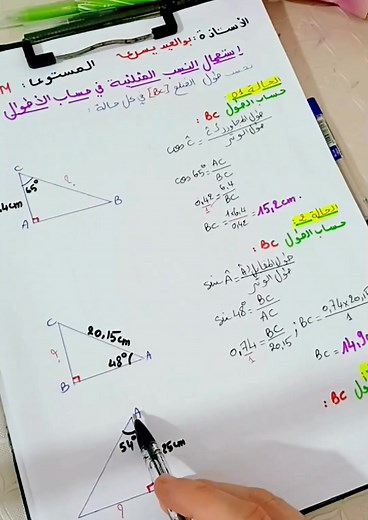 الأستاذة: بوالعيد يسرى
المستوى: M
إستعمال النسب المثلثية في حساب الأطوال
حسب طول الضلع [BC] في كل حالة:
الحالة 1:
حساب الطول BC:
cos Ĉ = طول المجاور لـ Ĉ / طول الوتر
cos 65° = AC / BC
0,42 / 1 = 6,4 / BC
BC = 1×6,4 / 0,42 = 15,2cm.
C
65°
?
B
4cm
A
الحالة 2:
حساب الطول BC:
sin Â = طول المقابل لـ Â / طول الوتر
sin 48° = BC / AC
0,74 / 1 = BC / 20,15 ; BC = 0,74×20,15 / 1
BC = 14,9
C
20,15cm
?
48°
A
B
حساب الطول BC:
A
54°
25cm
?